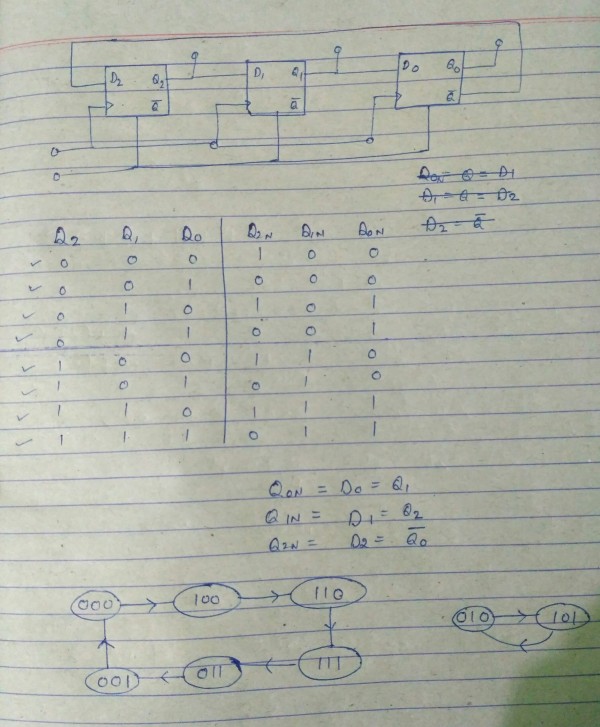 D2 Q2 D1 Q1 D0 Q0
Q̄ Q̄ Q̄
Q0N = Q = D1
D1 = Q = D2
D2 = Q̄
Q2 Q1 Q0 Q2N Q1N Q0N
✓ 0 0 0 1 0 0
✓ 0 0 1 0 0 0
✓ 0 1 0 1 0 1
✓ 0 1 1 0 0 1
✓ 1 0 0 1 1 0
✓ 1 0 1 0 1 0
✓ 1 1 0 1 1 1
✓ 1 1 1 0 1 1
Q0N = D0 = Q1
Q1N = D1 = Q2
Q2N = D2 = Q̄0
000 100 110 010 101
001 011 111